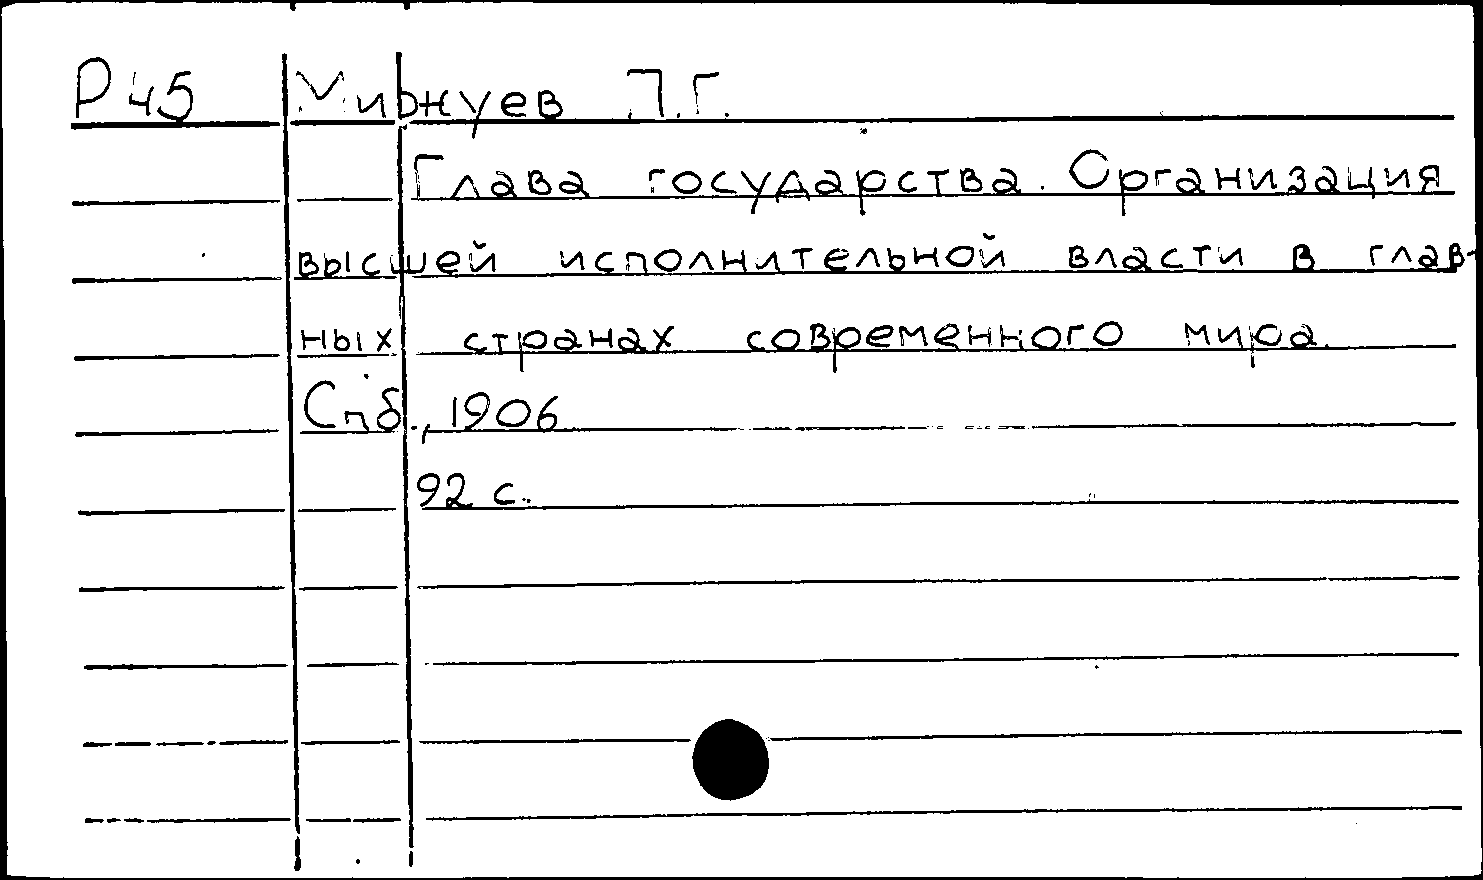 Р45 Мижуев П.Г.
Глава государства. Организация
высшей исполнительной власти в глав-
ных странах современного мира.
Спб., 1906
92 с.